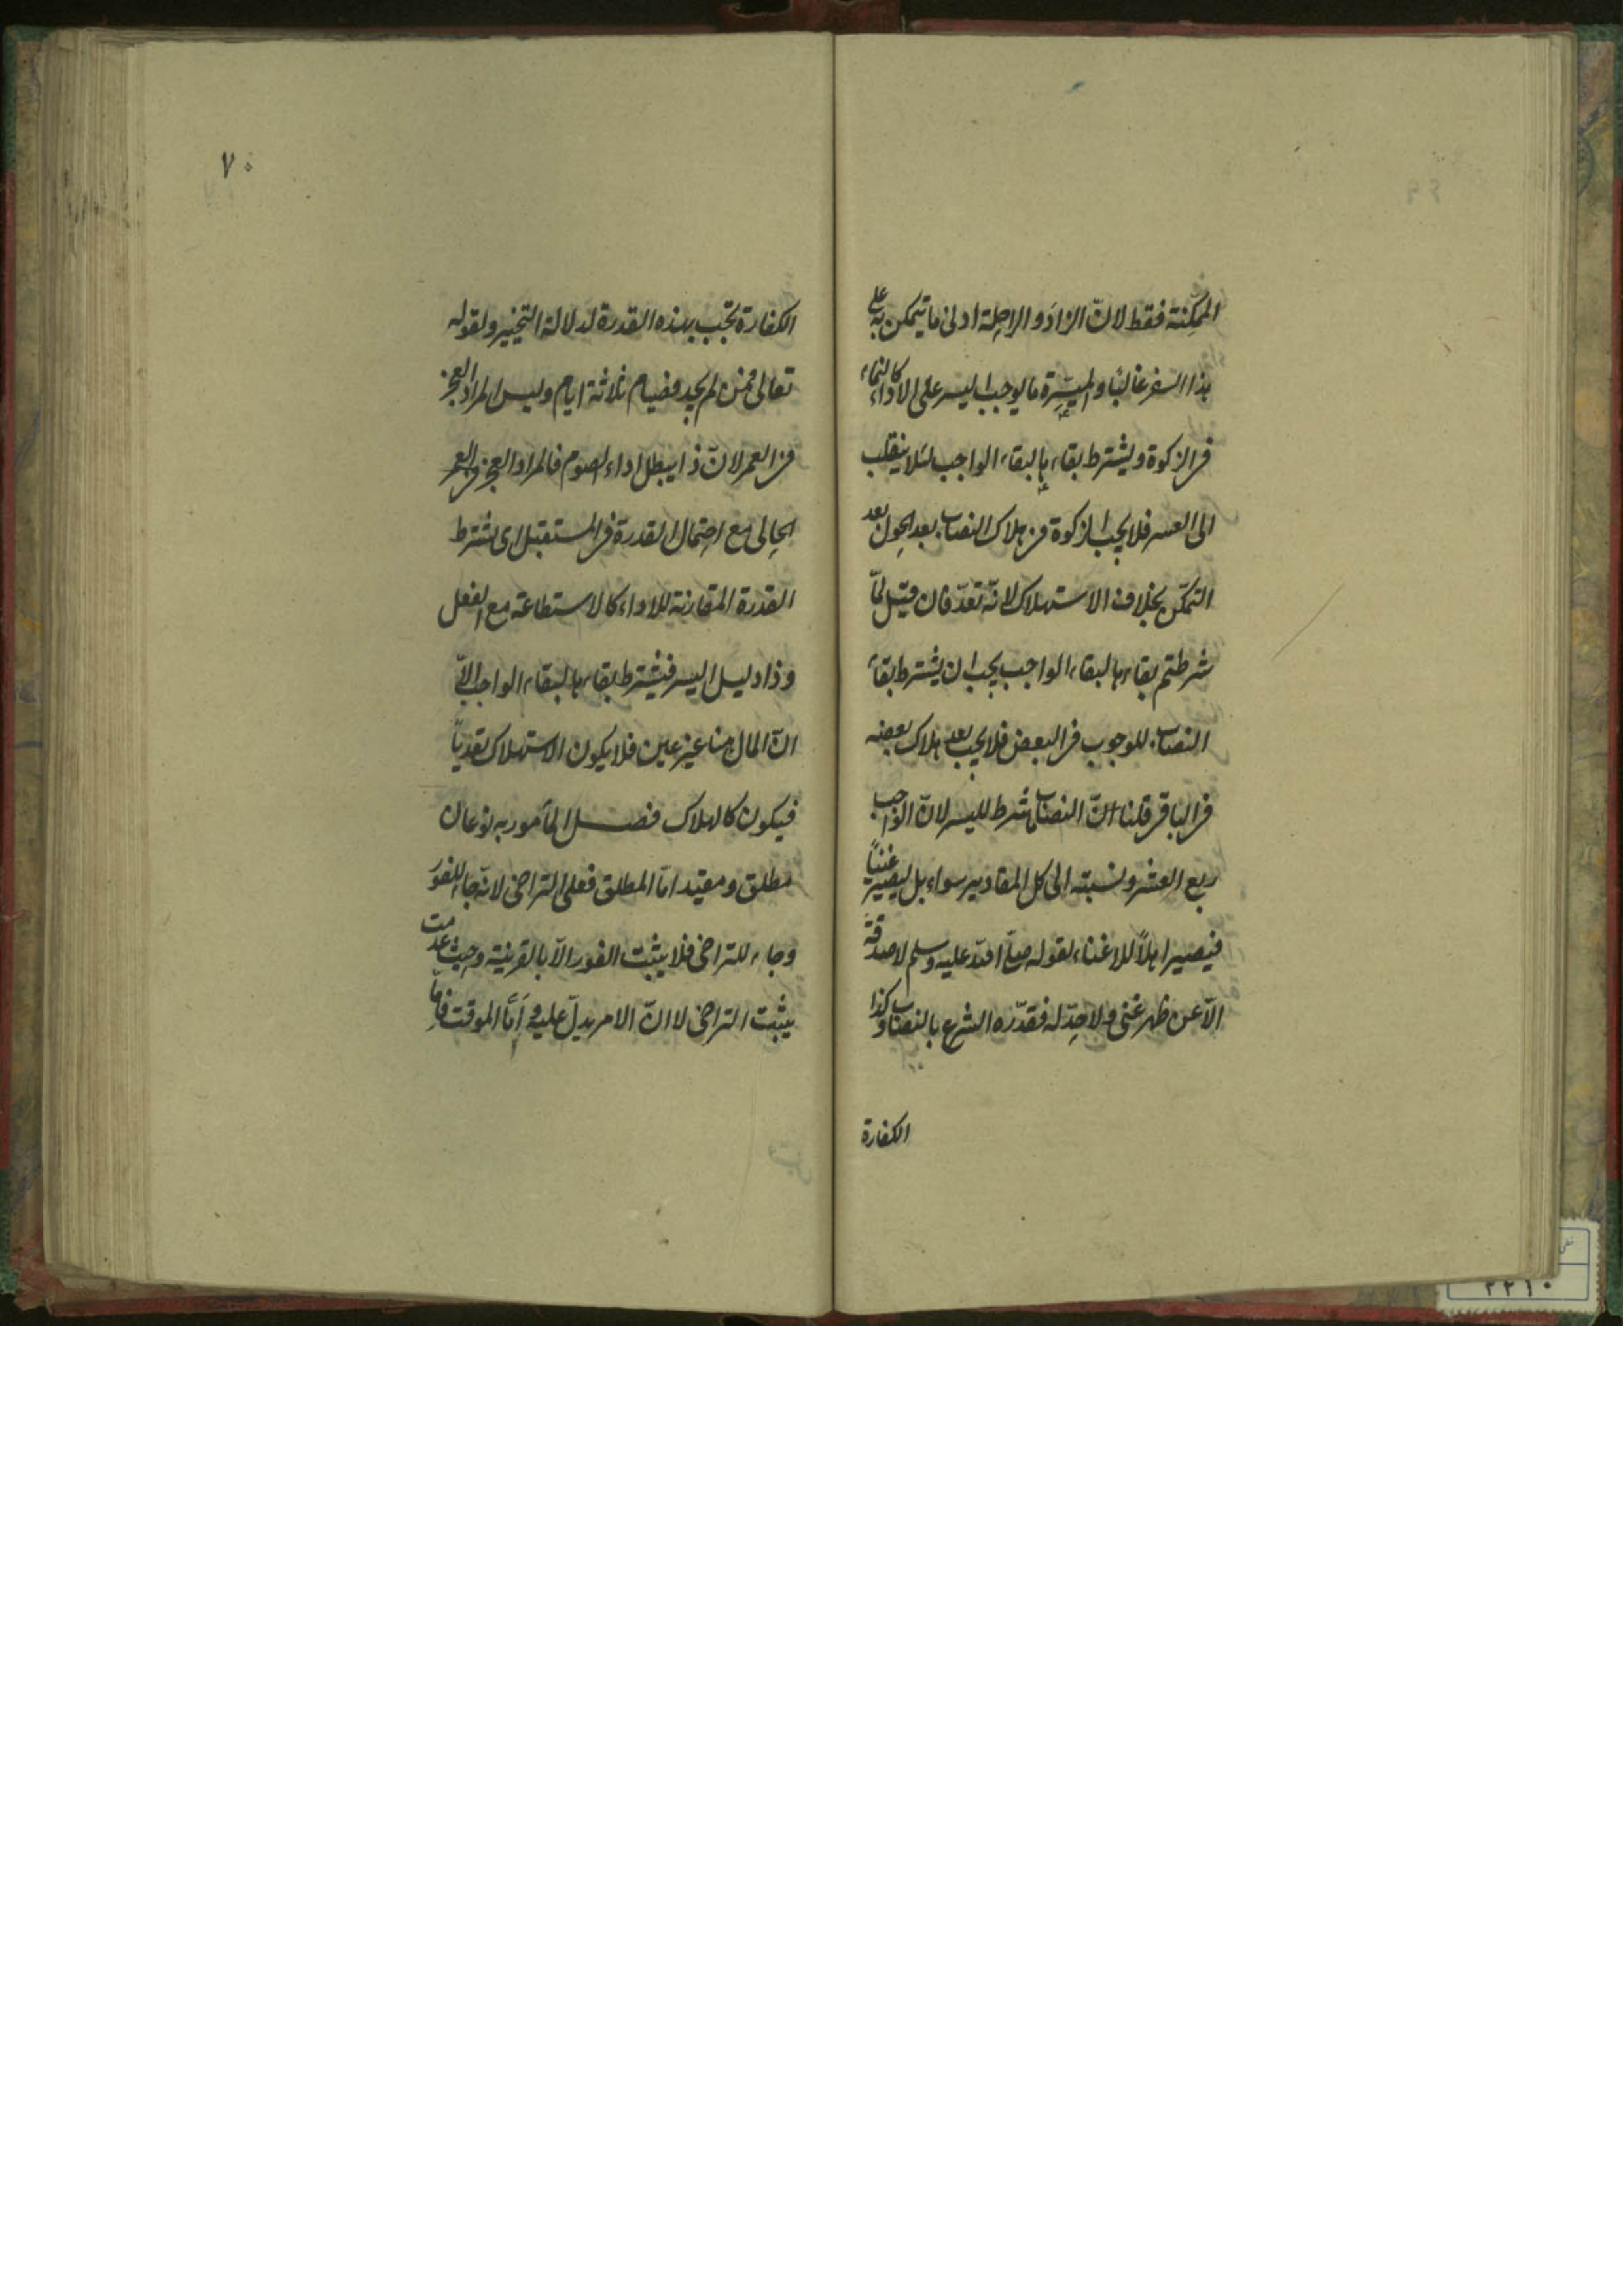 الممكنة فقط لانّ الزاد و الراحلة ادنى ما يتمكن به على
هذا السفر غالبًا والميسّرة ما يوجب اليسر على الاداء كالنماء
فى الزكوة ويشترط بقاءها لبقاء الواجب لئلا ينقلب
الى العسر فلا يجب الزكوة فى هلاك النصاب بعد الحول بعد
التمكّن بخلاف الاستهلاك لانّه تعدّ فان قيل لمّا
شرطتم بقاءها لبقاء الواجب يجب ان يشترط بقاء
النصاب للوجوب فى البعض فلا يجب بعد هلاك بعضه
فى الباقى قلنا انّ النصاب ما شرط لليسر لانّ الواجب
ربع العشر ونسبته الى كل المقادير سواء بل ليصير غنيًا
فيصير اهلاً للاغناء لقوله صلّى الله عليه وسلم لا صدقة
الّا عن ظهر غنى ولا حدّ له فقدّره الشرع بالنصاب وكذا
الكفارة
٧٠
الكفارة تجب بهذه القدرة لدلالة التخيير ولقوله
تعالى فمن لم يجد فصيام ثلاثة ايام وليس المراد العجز
فى العمر لانّ ذا يبطل اداء الصوم فالمراد العجز
الحالى مع احتمال القدرة فى المستقبل اى يشترط
القدرة المقارنة للاداء كالاستطاعة مع الفعل
وذا دليل اليسر فيشترط بقاءها لبقاء الواجب الّا
انّ المال هنا غير عين فلا يكون الاستهلاك تعديًّا
فيكون كالهلاك فصل المأمور به نوعان
مطلق ومقيّد امّا المطلق فعلى التراخى لانّه جاء للفور
وجاء للتراخى فلا يثبت الفور الّا بالقرينة وحيث عدمت
يثبت التراخى لا انّ الامر يدلّ عليه و امّا الموقت فامّا
٢٢١٠